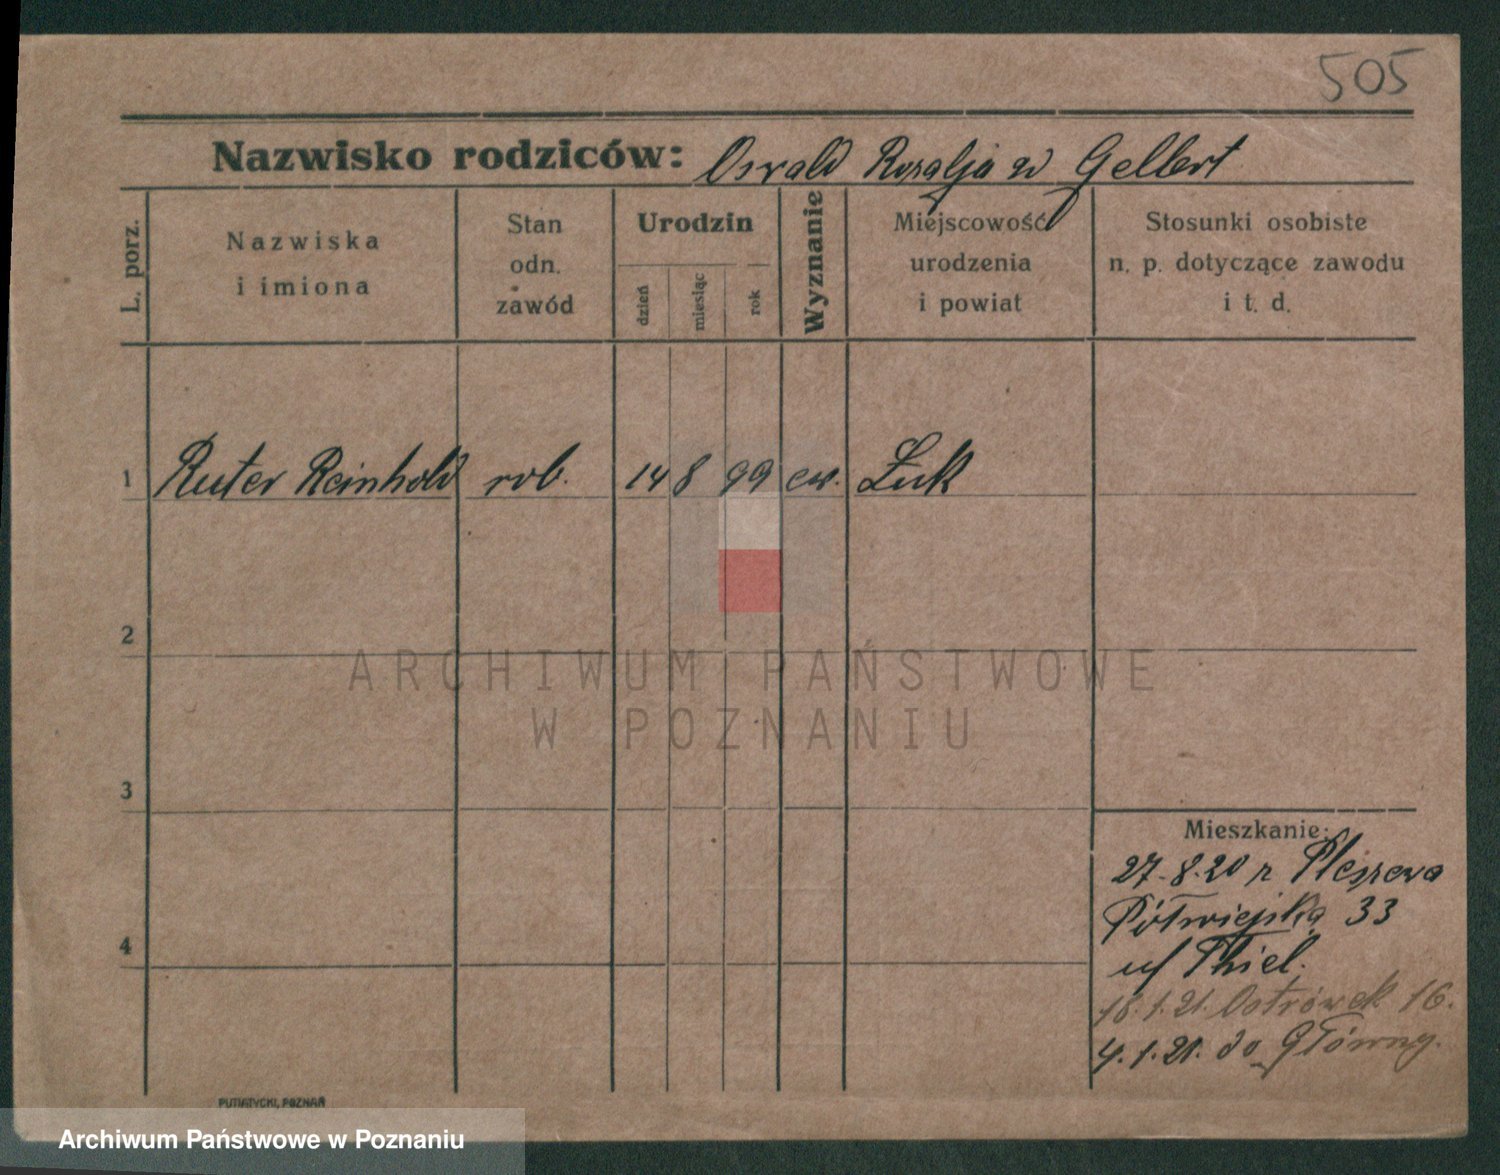 505
Nazwisko rodziców: Oswald Rozalja zd Gellert
L. porz.
Nazwiska
i imiona
Stan
odn.
zawód
Urodzin
dzień
miesiąc
rok
Wyznanie
Miejscowość
urodzenia
i powiat
Stosunki osobiste
n. p. dotyczące zawodu
i t. d.
1 Ruter Reinhold rob. 14 8 99 ew. Żuk
2
3
4
Mieszkanie:
27.8.20 z Pleszewa
Półwiejska 33
u/ Thiel.
18.1.21. Ostrówek 16.
4.1.21. do Główny.
PUTIATYCKI, POZNAŃ
ARCHIWUM PAŃSTWOWE
W POZNANIU
Archiwum Państwowe w Poznaniu